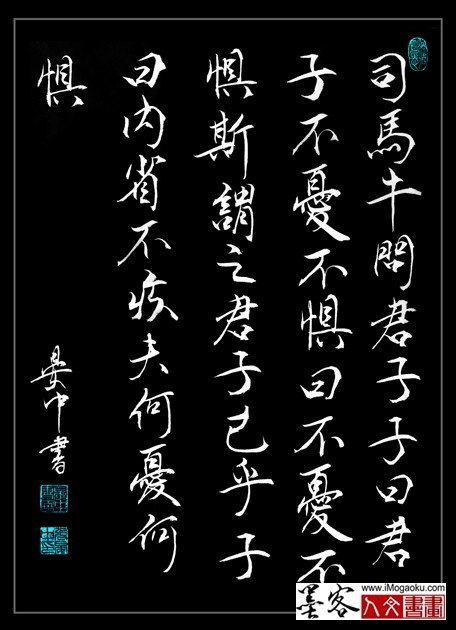 司馬牛問君子子曰君
子不憂不惧曰不憂不
惧斯謂之君子已乎子
曰内省不疚夫何憂何
惧
中書
www.iMogaoku.com
墨客
人文書畫